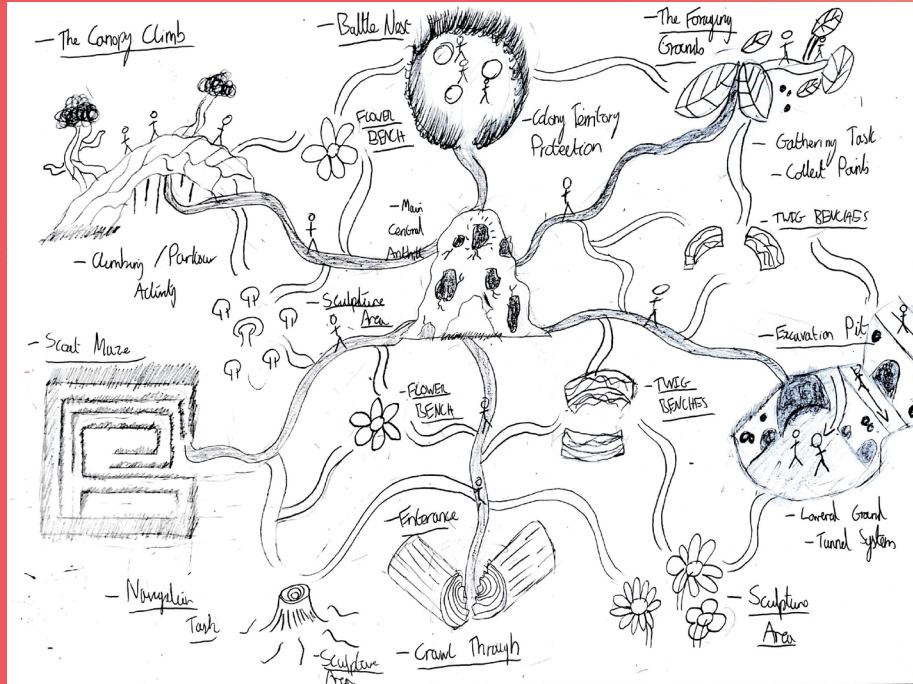 - The Canopy Climb
- Battle Nest
- The Foraging
Grounds
FLOWER
BENCH
- Colony Territory
Protection
- Gathering Task
- Collect Points
- Main
Central
Anthill
- TWIG BENCHES
- Climbing / Parkour
Activity
- Sculpture
Area
- Excavation Pit
- Scout Maze
- FLOWER
BENCH
- TWIG
BENCHES
- Enterance
- Lowered Ground
- Tunnel System
- Navigation
Task
- Sculpture
Area
- Crawl Through
- Sculpture
Area